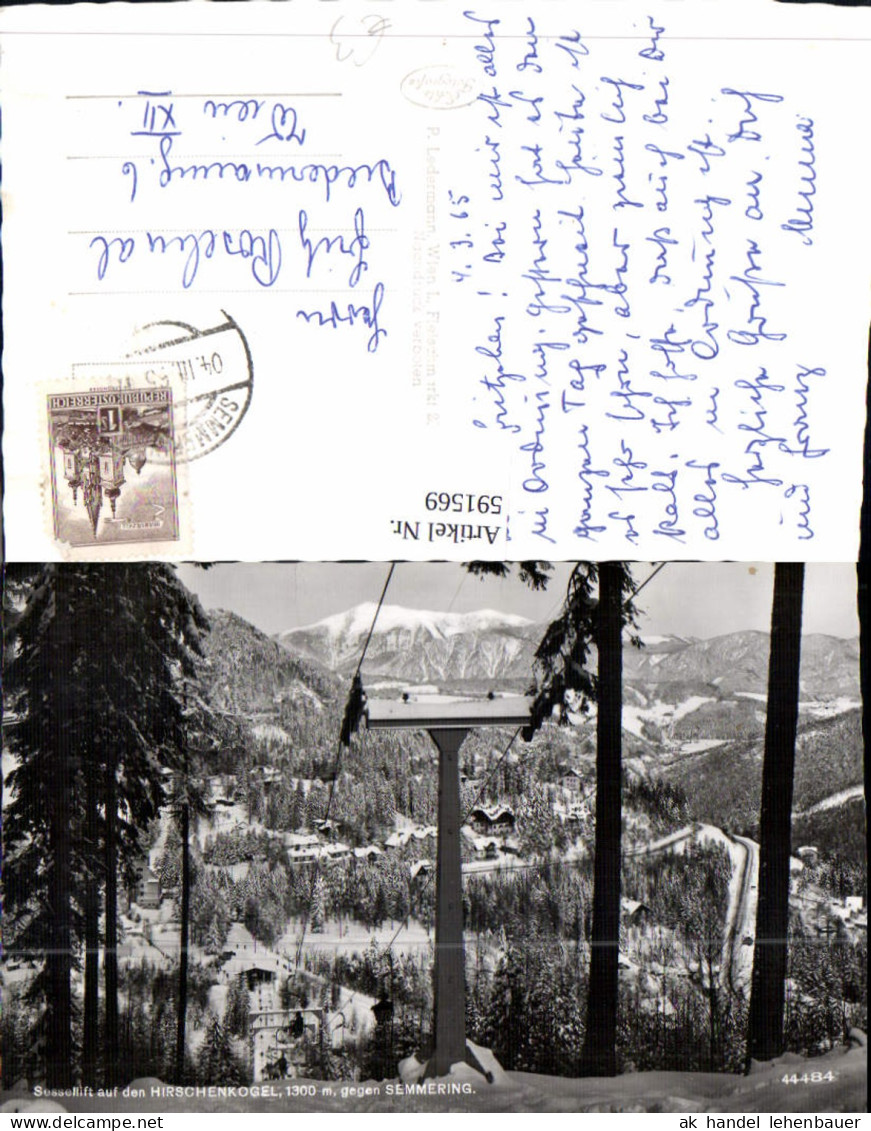 4. 3. 65
Fritzchen! Bei mir ist alles
in Ordnung. Gestern hat es den
ganzen Tag geschneit. Heute ist
es sehr schön, aber ziemlich
kalt. Ich hoffe, daß auch bei Dir
alles in Ordnung ist.
Herzliche Grüße an Dich
und Franz
P. Ledermann, Wien I., Fleischmarkt
Nachdruck verboten
Echte
Fotografie
Herrn
Fritz
Wien XII.
REPUBLIK ÖSTERREICH
1 S
04.III.65
SEMMERING
Artikel Nr.
591569
Sessellift auf den HIRSCHENKOGEL, 1300 m, gegen SEMMERING.
44484
ak handel lehenbauer